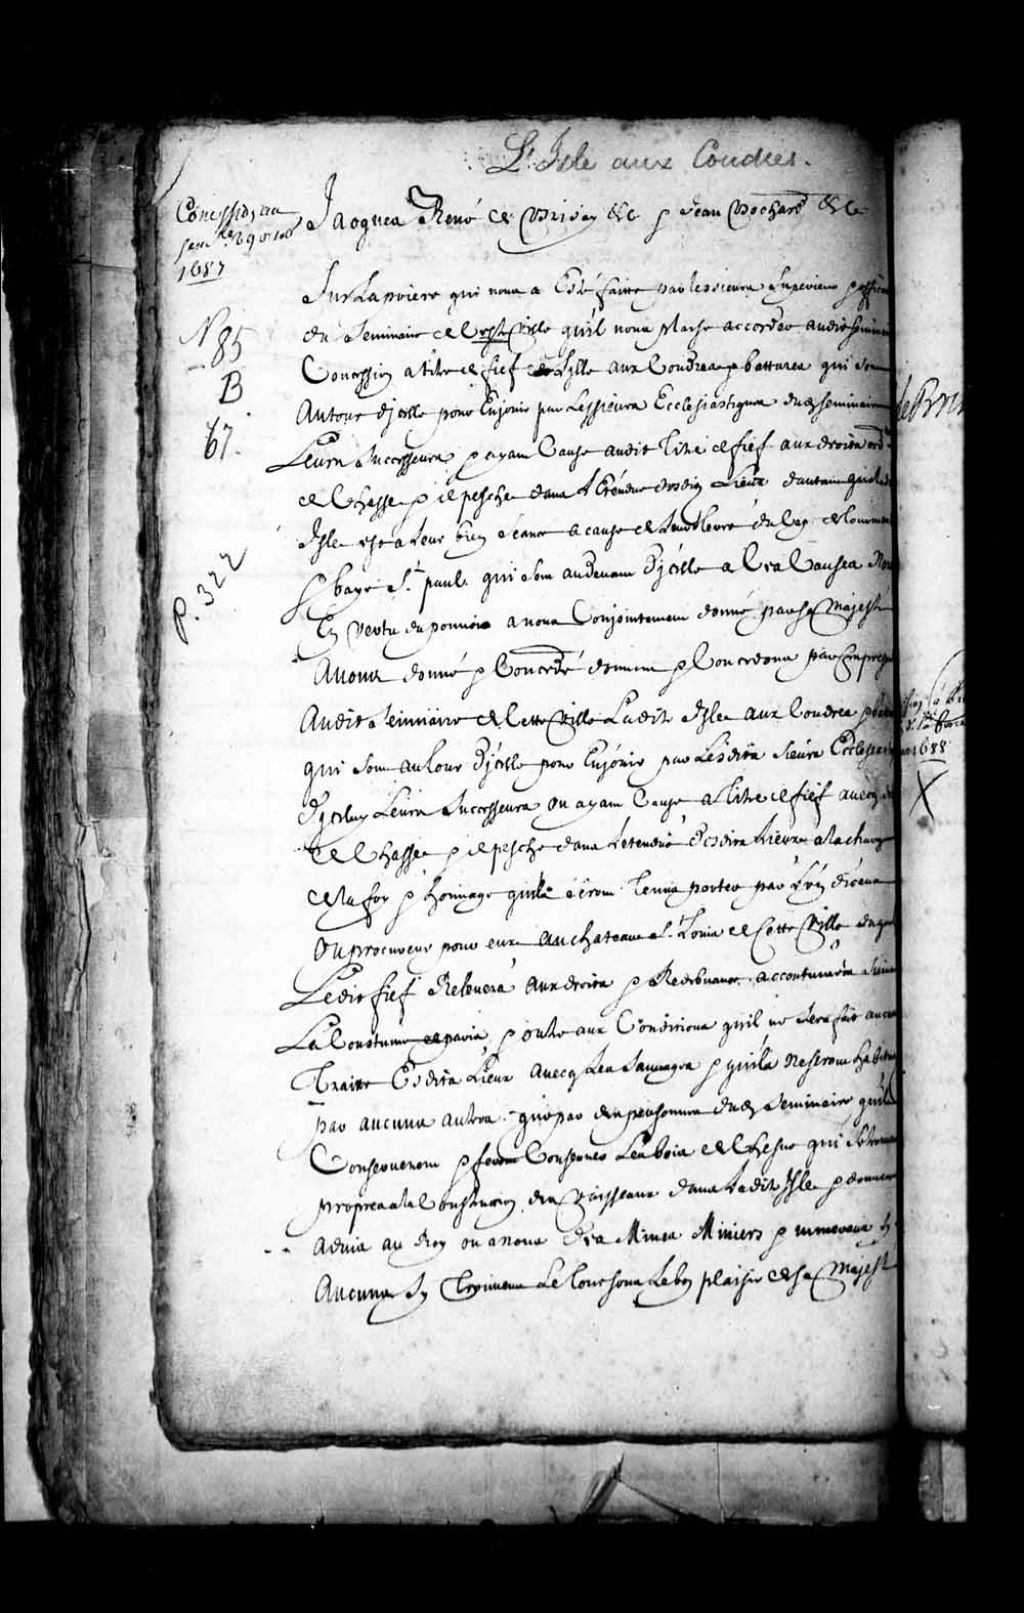 L'Isle aux Coudres.
Concession au
sem.re 29 oct.
1687
Jacques René de Brisay &c p Jean Bochart &c
N 85
B
67.
P. 322
Sur La priere qui nous a Esté faitte par les sieurs Superieur p
du Seminaire de Cette Ville qu'il nous plaise accorder audit
Concession a titre de fief de L'isle aux Coudres p battures qui sont
Autour d'jcelle pour En jouir par Les sieurs Ecclesiastiques dud seminaire
Leurs Successeurs p ayans Cause audit titre de fief aux droits
de Chasse p de pesche dans l'Etendue desdits Lieux d'autant que
Isle est a Leur bien seance a cause de Leurs Terres du Cap de tourmente
p baye St. paul qui sont audevant d'jcelle a Ces Causes Nous
En vertu du pouvoir a nous Conjointement donné par sa Majesté
Avons donné p Concedé donnons p Concedons par Ces presentes
Audit Seminaire de Cette Ville Ladite Isle aux Coudres p
qui sont autour d'jcelle pour En jouir par Lesdits Sieurs Ecclesias
d'jceluy Leurs Successeurs ou ayans Cause a titre de fief avecq
de Chasse p de pesche dans Letendue desdits Lieux a la charge
de la foy p hommage qu'ils seront tenus porter par L'un d'iceux
ou procureur pour eux au chateau St. Louis de Cette Ville duquel
Ledit fief Relevera aux droits p Redevances accoutumées suivant
La Coustume de paris, p outre aux Conditions qu'il ne sera fait aucune
Traitte Esdits Lieux avecq Les Sauvages p qu'ils ne seront habitez
par aucuns autres que par des personnes dud Seminaire qu'ils
Conserveront p feront Conserver Les bois de Chesne qui se trouveront
propres a la Construction des Vaisseaux dans Ladite Isle p donneront
advis au Roy ou a nous des Mines Miniers p mineraux sy
Aucuns s'y trouvent Le tout sous Le bon plaisir de sa Majesté
1688
X